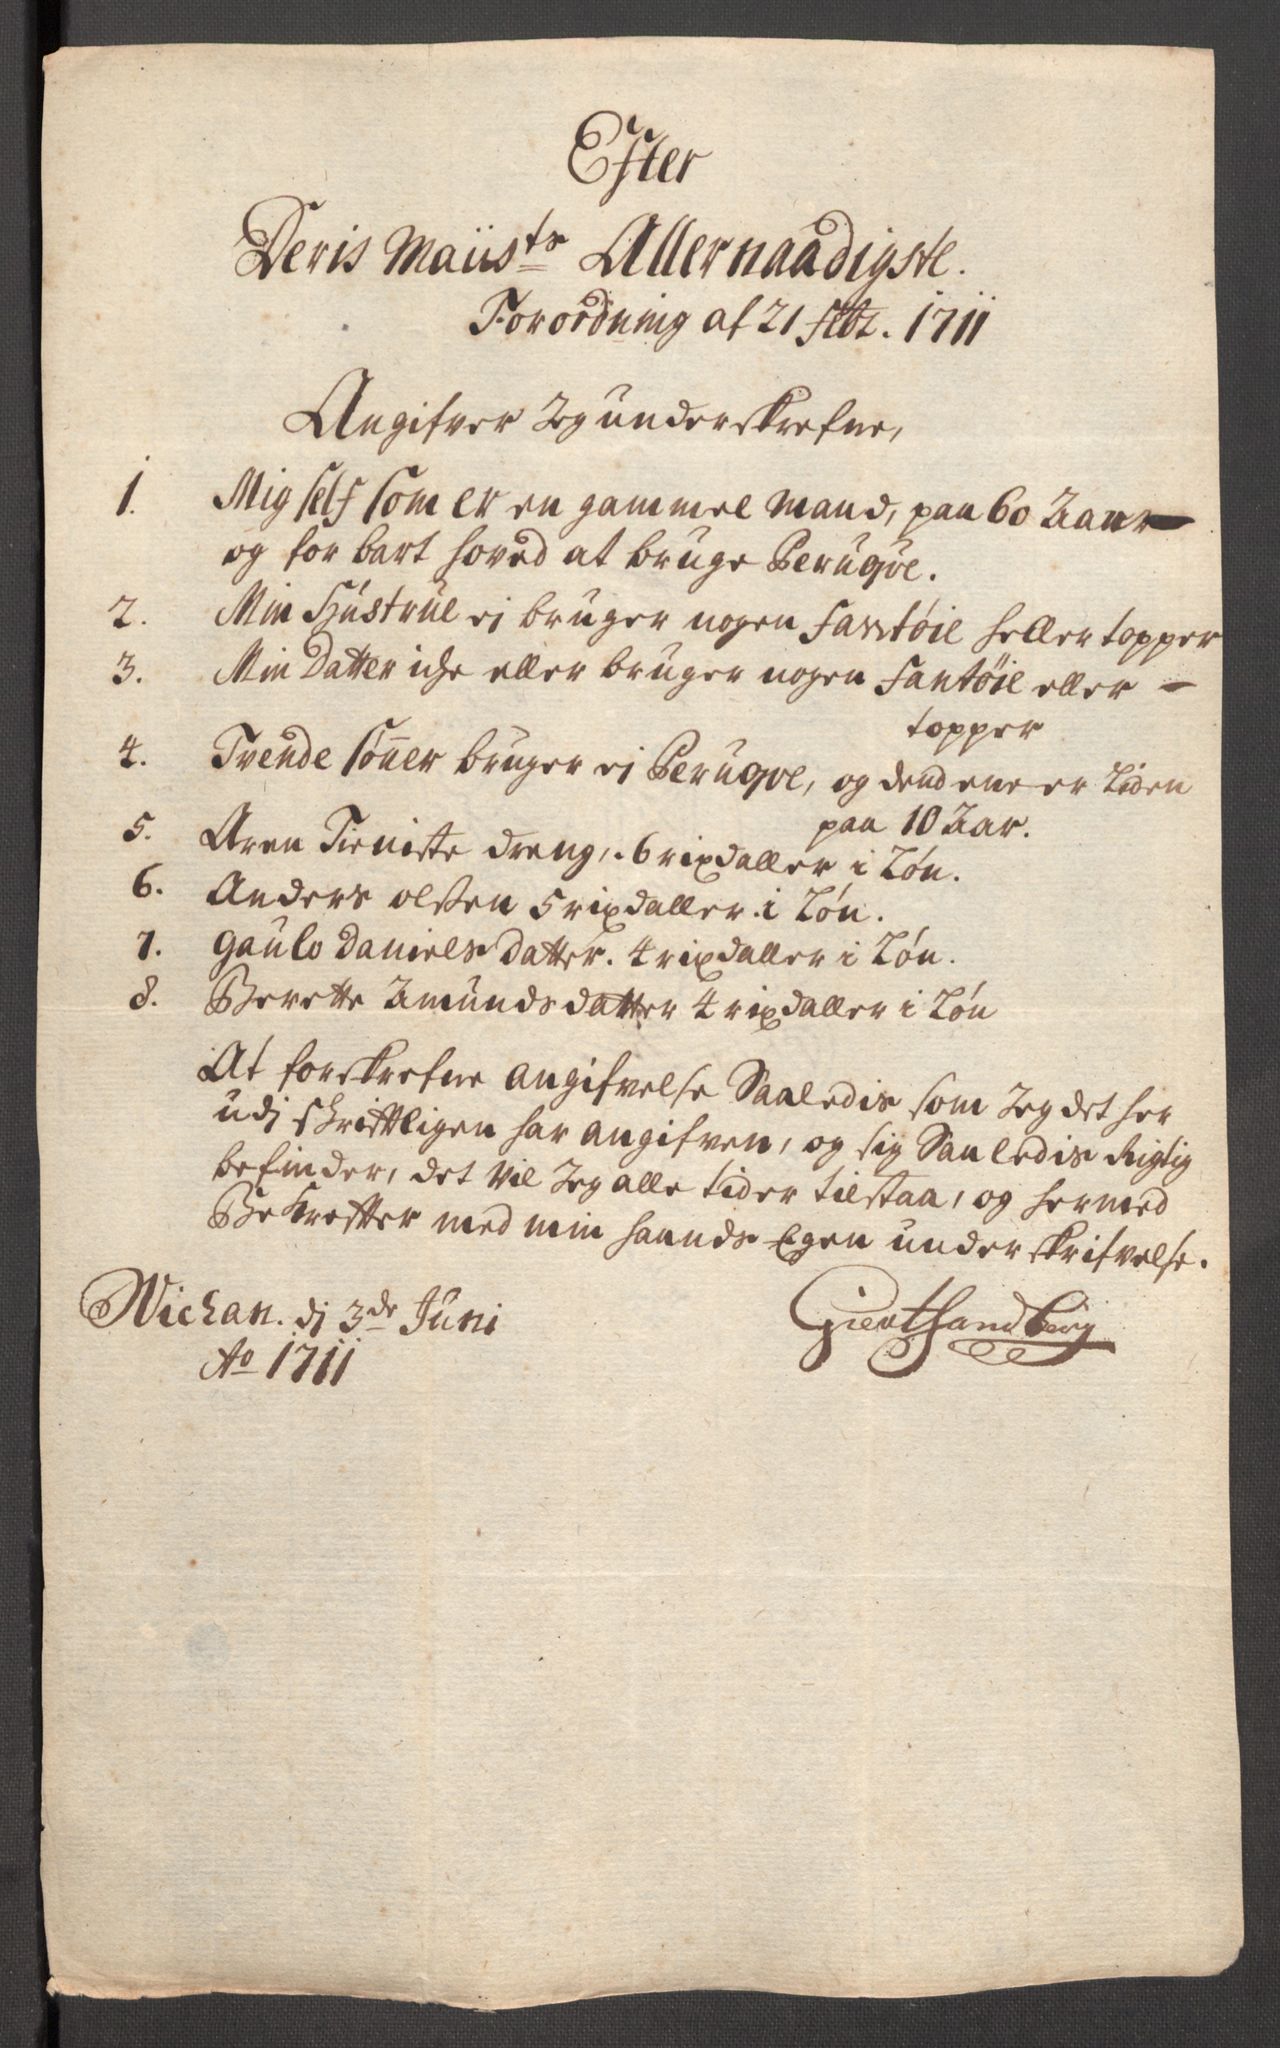 Efter
Deris Maiisᵗˢ Allernaadigste.
Forordning af 21 febr. 1711
Angifver Jeg underskrefne,
1. Mig self som er en gammel mand, paa 60 Aar
og for bart hoved at bruge Peruqve.
2. Min Hústrue ej bruger nogen Fantøie heller topper
3. Min Datter iche eller bruger nogen Fantøie eller -
topper
4. Trende Sønner bruger ej Peruqve, og dend ene er Liden
paa 10 Aar.
5. Aren Tieniste dreng, 6 rixdaller i Løn.
6. Anders olsen 5 rixdaller i Løn.
7. Gaulo Daniels Datter. 4 rixdaller i Løn.
8. Berette Amunds datter 4 rixdaller i Løn
At forskrefne angifvelse Saaledis som Jeg det her
udj skriftligen har angifven, og sig Saaledis Rigtig
befinder, det vil Jeg alle tider tilstaa, og hermed
Bekrefter med min haands Egen underskrifvelse.
Wichan. dj 3de Juni
Ao 1711
Giert Sandberg